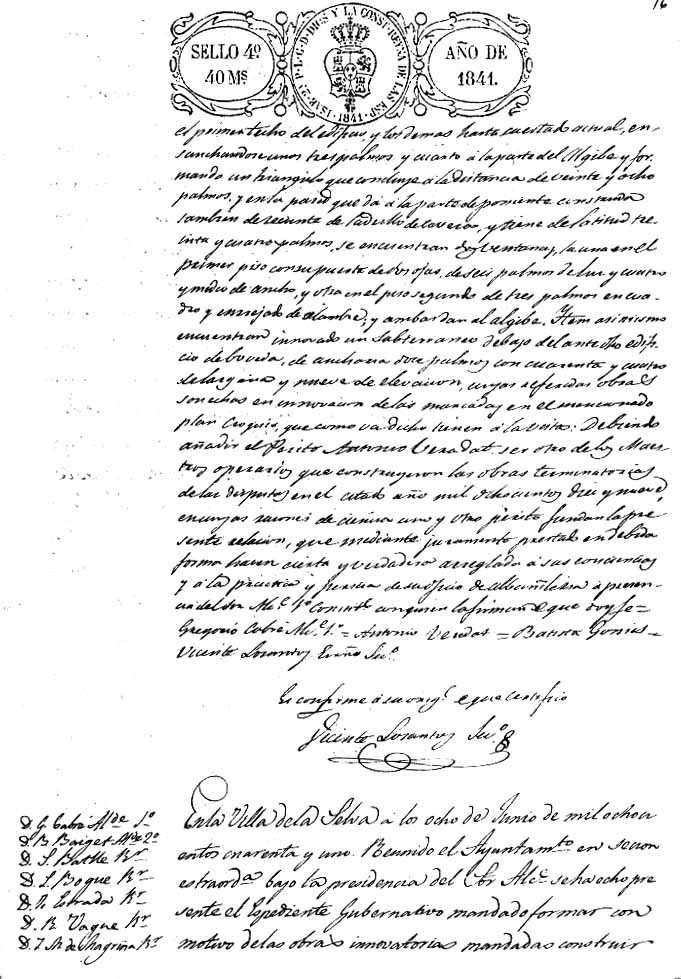 16
SELLO 4º
40 Mˢ
ISAB. 2ª P. L. G. D. DIOS Y LA CONST. REYNA DE LAS ESP.
1841
AÑO DE
1841.
el primer techo del edificio, y los demas hasta cuestado actual, en-
sanchandose unos tres palmos y cuarto á la parte del Algibe y for-
mando un triangulo que concluye á la distancia de veinte y ocho
palmos, y en la pared que dá á la parte de poniente construida
tambien de reciente de ladrillo de tavera, y tiene de latitud tre-
inta y cuatro palmos, se encuentran dos ventanas, la una en el
primer piso con su puerta de dos ojas, de seis palmos de luz y cuatro
y medio de ancho, y otra en el piso segundo de tres palmos en cua-
dro y enrejado de alambre, y ambas dan al algibe. Item asi mismo
encuentran innovado un subterraneo debajo del antedho edifi-
cio de boveda, de anchura doce palmos con cuarenta y cuatro
de largaria y nueve de elevacion, cuyas referidas obras
son echas en innovacion de las marcadas en el mencionado
plan Croquis, que como va dicho tienen á la vista. Debiendo
añadir el Perito Antonio Veradat ser otro de los Maes-
tros operarios que construyeron las obras terminatorias
de las disputas en el citado año mil ochocientos diez y nueve,
en cuyas razones de ciencia uno y otro perito fundan la pre-
sente relacion, que mediante juramento prestado en debida
forma hacen cierta y verdadera arreglada á sus conciencias
y á la practica y pericia de su oficio de albañileria á presen-
cia del Sor Alcᵉ 1º Constitˡ con quien la firman de que doy fe =
Gregorio Cabré Alcᵉ 1º = Antonio Verdat = Bautista Gomis =
Vicente Lorantes Esño Sⁱº
Es conforme á su origˡ de que certifico
Vicente Lorantes Sⁱº
D. G. Cabré Alᵈᵉ 1º
D. B. Baiget Alᵈᵉ 2º
D. S. Batlle Rᵒʳ
D. L. Bogue Rʳ
D. Estrada Rʳ
D. R. Vaque Rʳ
D. J. M. de Magriña Rʳ
En la Villa de la Selva á los ocho de Junio de mil ochoci
entos cuarenta y uno. Reunido el Ayuntamᵗᵒ en secion
estraordᵃ bajo la presidencia del Sor Alcᵉ se ha echo pre
sente el Espediente Gubernativo mandado formar con
motivo de las obras innovatorias mandadas construir